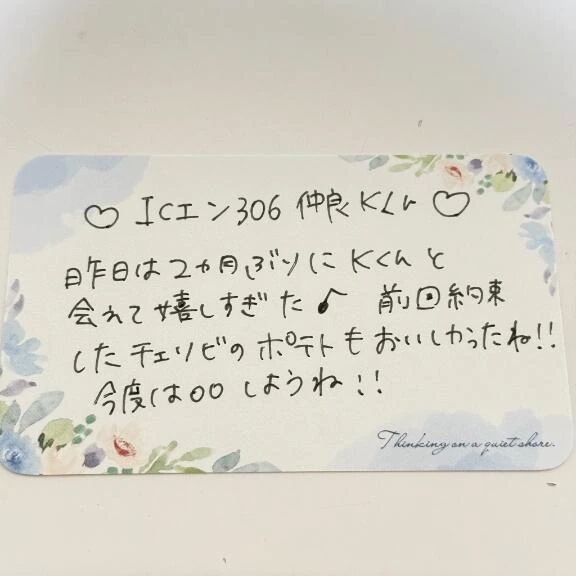 ♡ ICエン306 仲良Kくん ♡
昨日は2カ月ぶりにKくんと
会えて嬉しすぎた♪ 前回約束
したチェリビのポテトもおいしかったね!!
今度は〇〇しようね!!
Thinking on a quiet shore.